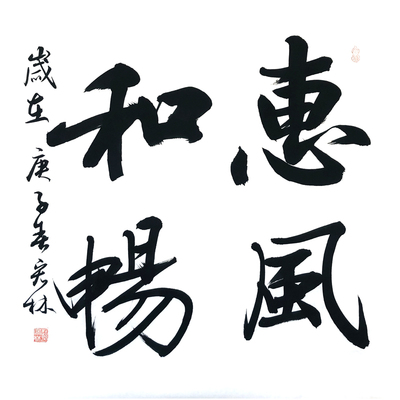 惠風
和暢
歲在庚子春宏林